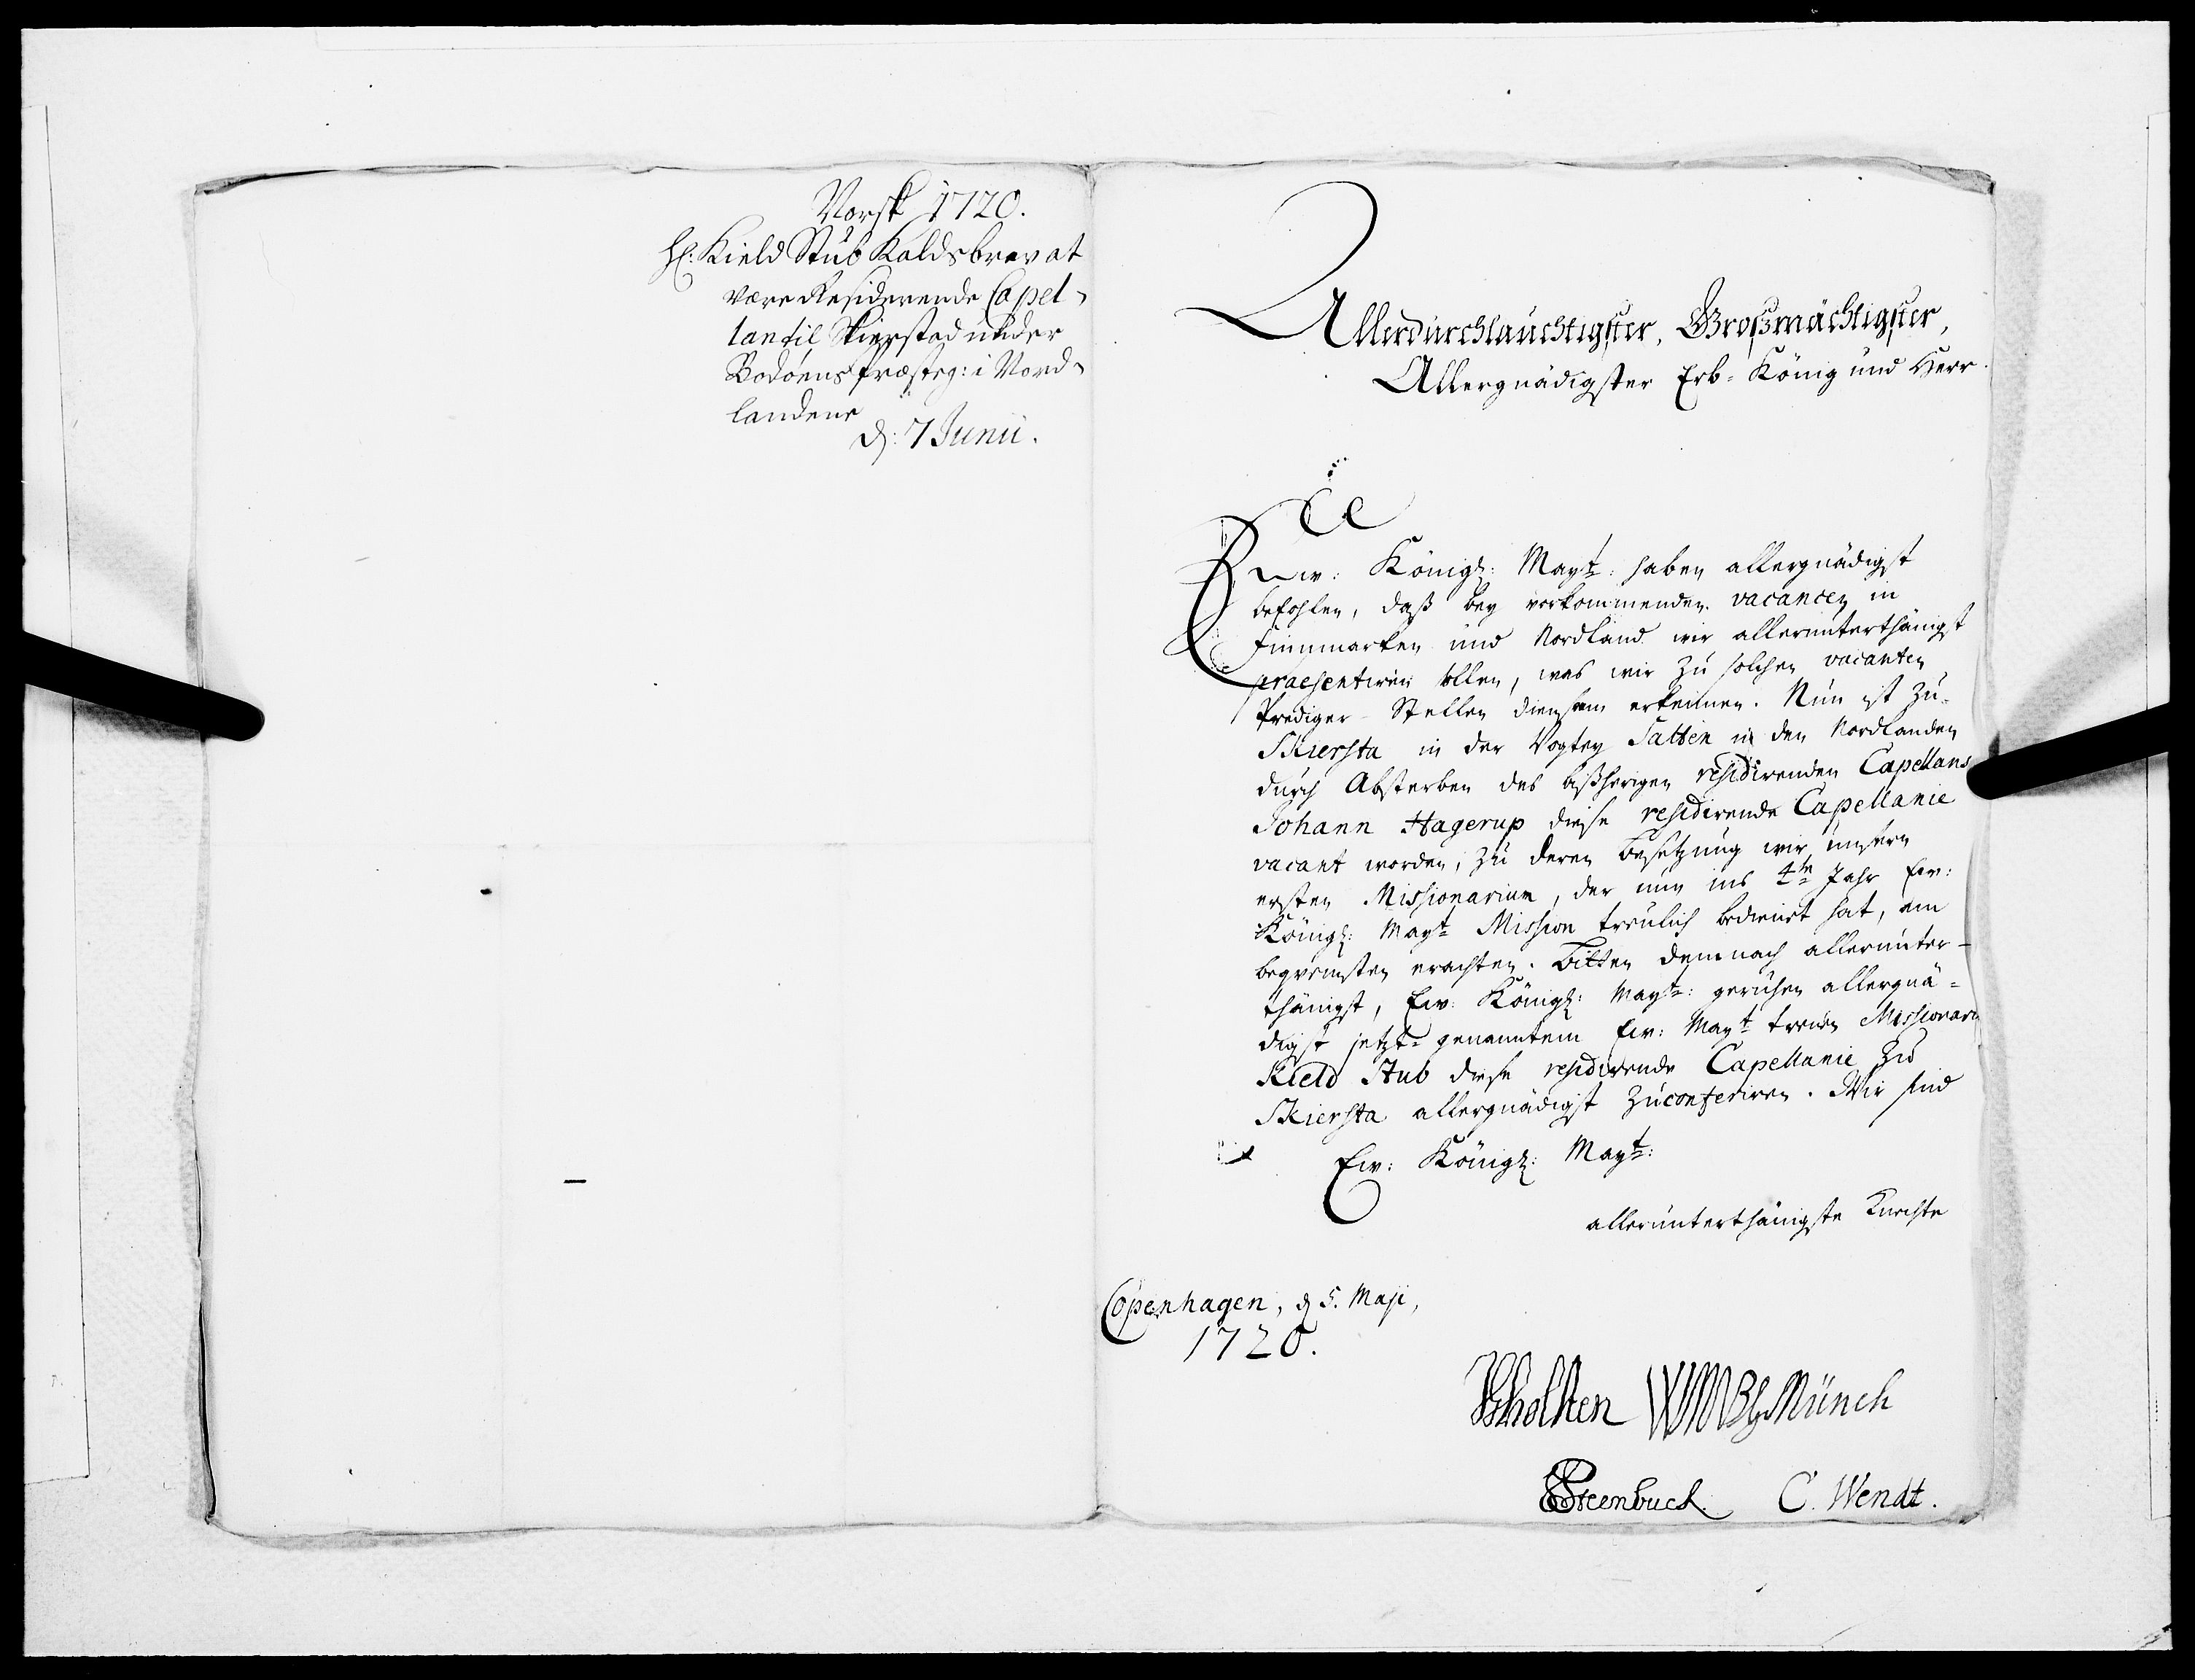 Norsk 1720.
Hr: Kield Stub Kaldsbrev at
være Residerende Capel-
lan til Skierstad under
Bodöens Præsteg: i Nord-
landene
d: 7 Junii.
Allerdurchlauchtigster, Großmächtigster,
Allergnädigster Erb-König und Herr
Ew: Königl: Mayt: haben allergnädigst
befohlen, daß bey vorkommenden vacancen in
Finmarken und Nordland wir allerunterthänigst
praesentiren sollen, was wir zu solchen vacanten
Prediger-Stellen diensam erkennen. Nun ist zu
Skiersta in der Vogtey Salten in den Nordlanden
durch Absterben des bißherigen residirenden Capellans
Johann Hagerup diese residirende Capellanie
vacant worden, zu deren Besetzung wir unsern
ersten Missionarium, der nun ins 4te Jahr Ew:
Königl: Mayt Mission treulich bedienet hat, am
beqvemsten erachten. Bitten demnach allerunter-
thänigst, Ew: Königl: Mayt: geruhen allergnä-
digst jetzt-genanntem Ew: Mayt treuen Missionari
Kield Stub diese residirende Capellanie zu
Skiersta allergnädigst zu conferiren. Wir sind
Ew: Königl: Mayt:
allerunterthänigste Knechte
Copenhagen, d 5. Maji,
1720.
JBholsten WMBgMünch
Steenbuch. C. Wendt.